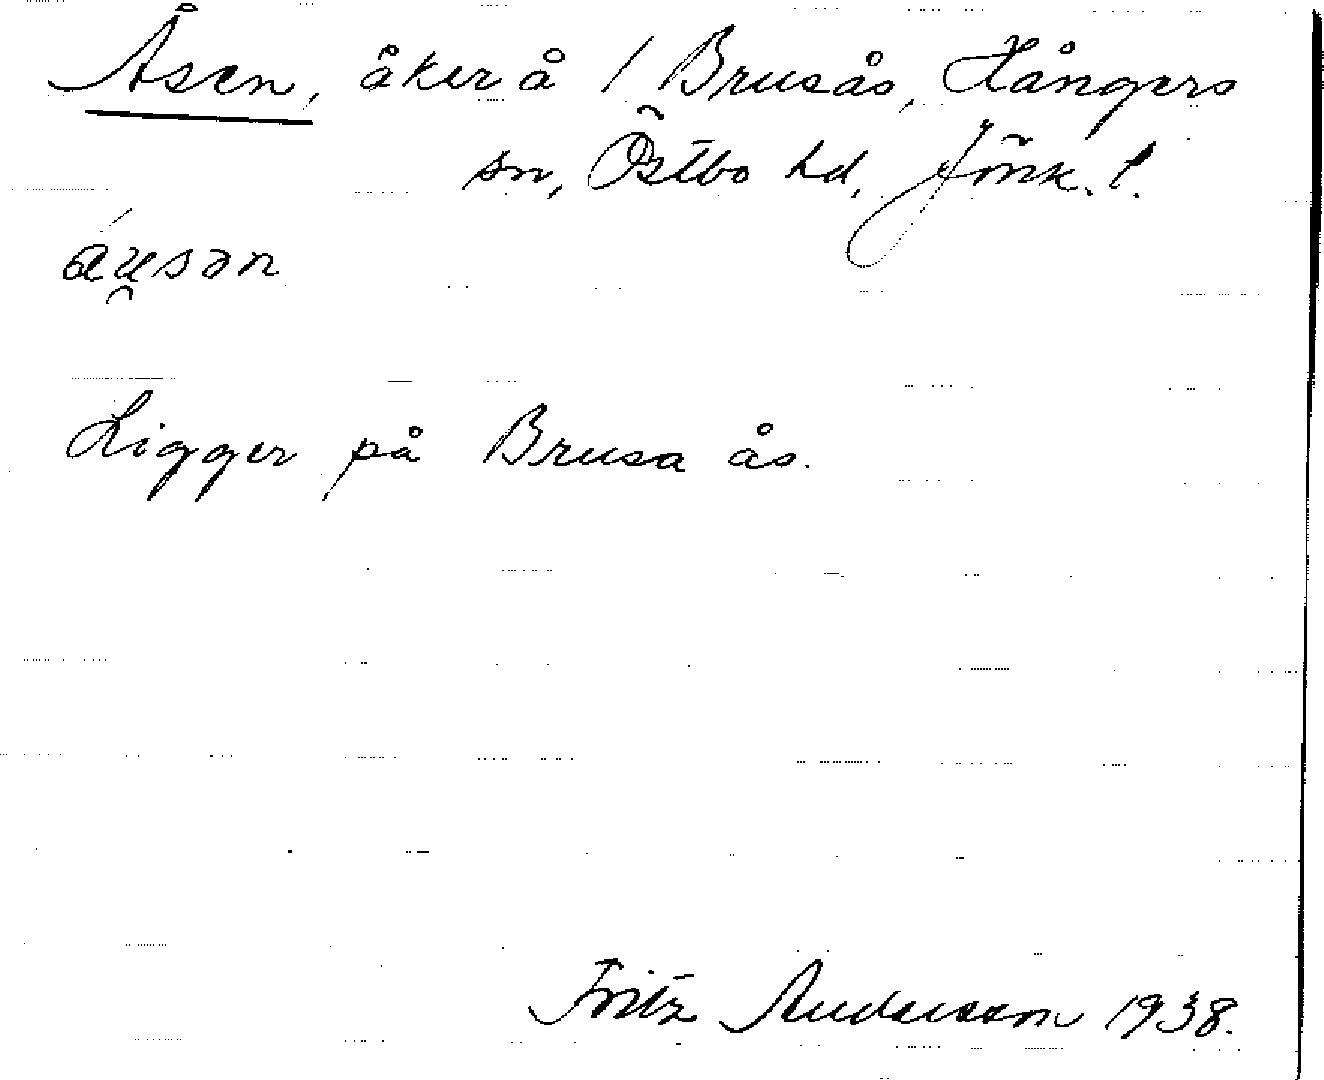 Åsen, åker å 1 Brusås, Hångers
sn, Östbo hd, Jönk. l.
áu̯sən
Ligger på Brusa ås.
Fritz Anderson 1938.